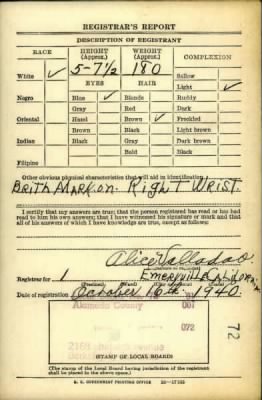 REGISTRAR'S REPORT
DESCRIPTION OF REGISTRANT
RACE HEIGHT (Approx.) WEIGHT (Approx.) COMPLEXION
White ✓ 5-7 1/2 180 Sallow
EYES HAIR Light ✓
Negro Blue ✓ Blonde Ruddy
Gray Red Dark
Oriental Hazel Brown ✓ Freckled
Brown Black Light brown
Indian Black Gray Dark brown
Bald Black
Filipino
Other obvious physical characteristics that will aid in identification
Brith Mark on Right Wrist.
I certify that my answers are true; that the person registered has read or has had read to him his own answers; that I have witnessed his signature or mark and that all of his answers of which I have knowledge are true, except as follows:
Alice
Registrar for 1 Emeryville California
Date of registration October 16th. 1940.
Alameda County 001
072
72
(STAMP OF LOCAL BOARD)
(The stamp of the Local Board having jurisdiction of the registrant shall be placed in the above space.)
U. S. GOVERNMENT PRINTING OFFICE